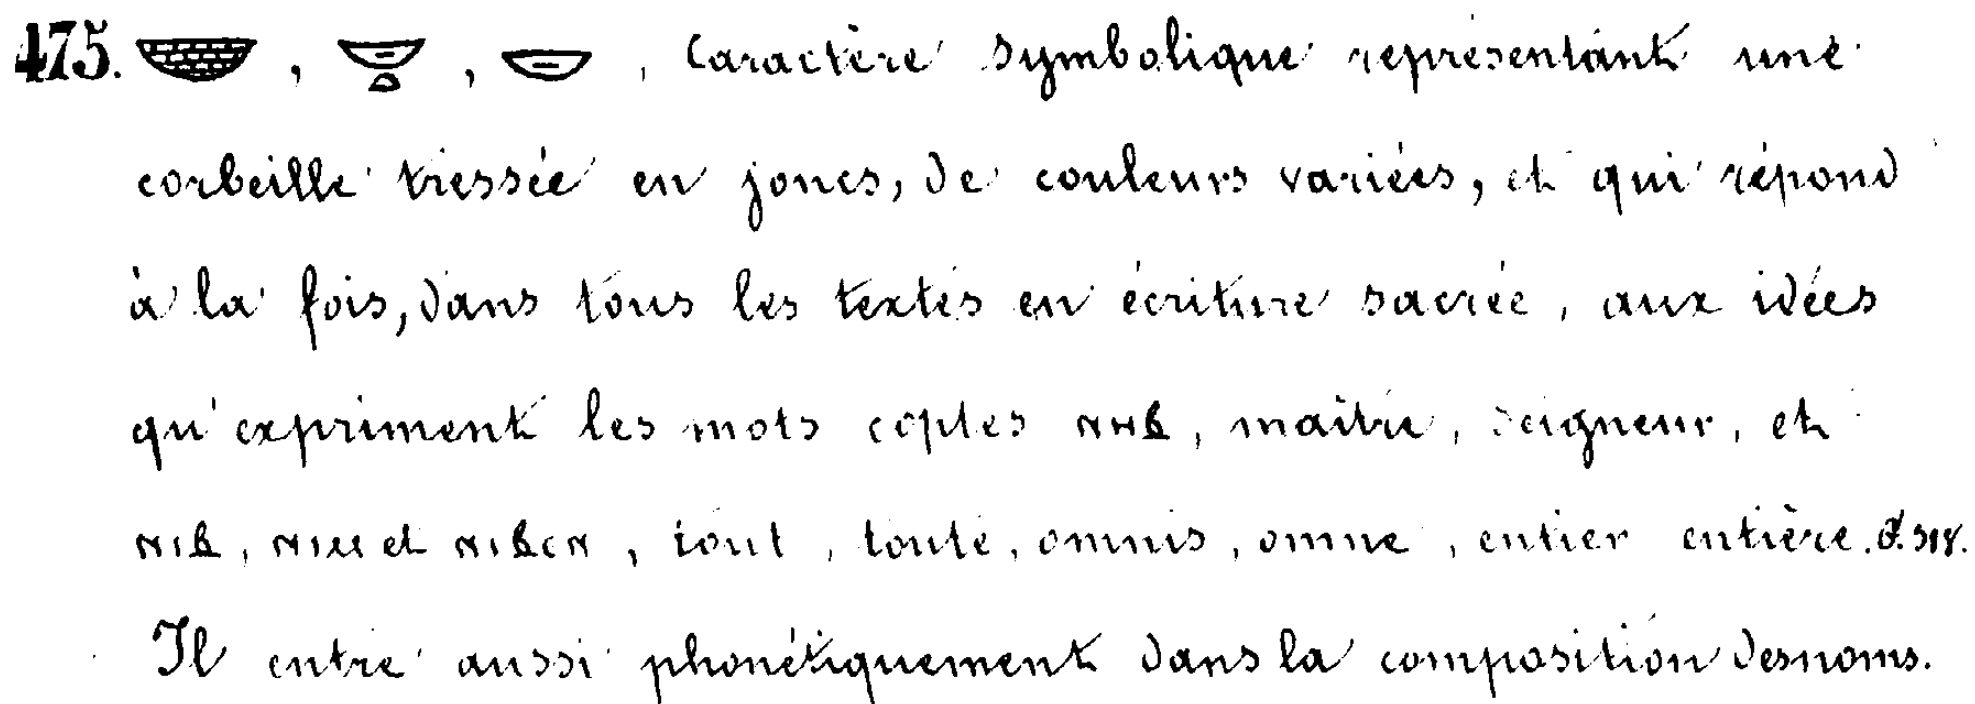 475. 𓎟, 𓎟𓏏, 𓎟, caractère symbolique représentant une
corbeille tressée en joncs, de couleurs variées, et qui répond
à la fois, dans tous les textes en écriture sacrée, aux idées
qu'expriment les mots coptes ⲛⲏⲃ, maître, seigneur, et
ⲛⲓⲃ, ⲛⲓⲙ et ⲛⲓⲃⲉⲛ, tout, toute, omnis, omne, entier entière.
Il entre aussi phonétiquement dans la composition des noms.